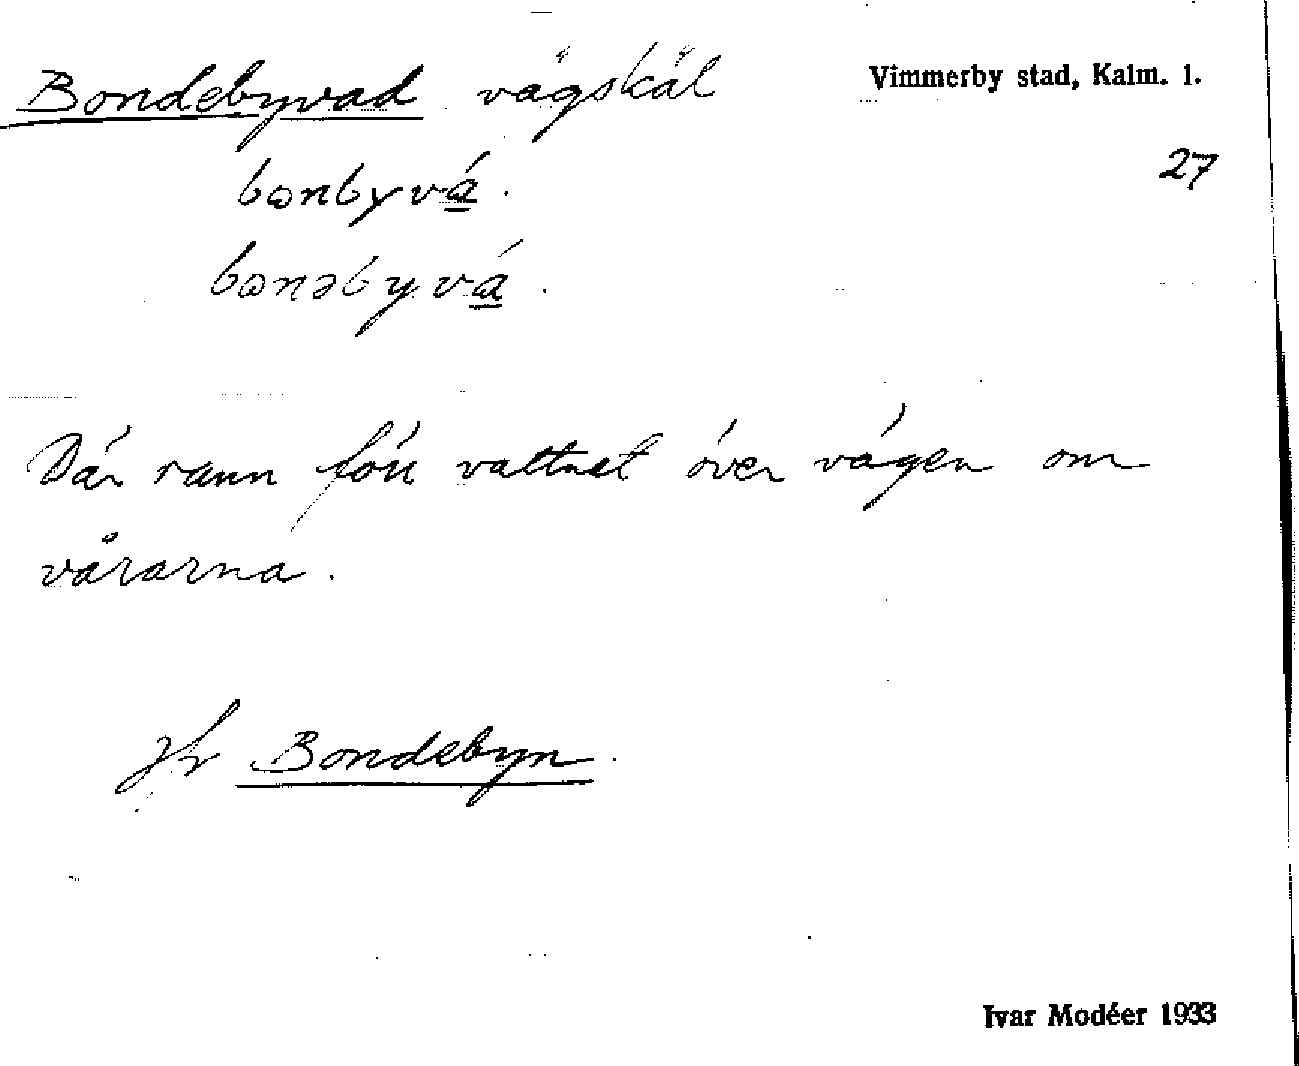 Bondebyvad vägskäl
Vimmerby stad, Kalm. l.
27
bɷnbyvá.
bɷnəbyvá.
Där rann förr vattnet över vägen om
vårarna.
Jfr Bondebyn.
Ivar Modéer 1933